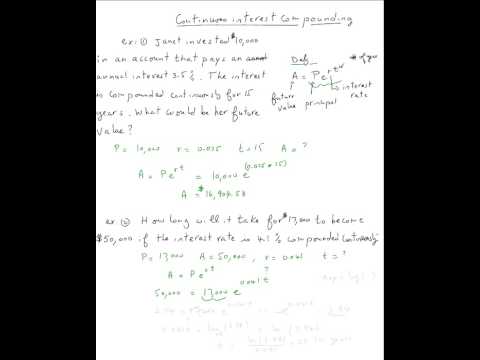 Continuous interest Compounding
ex: ① Janet invested $10,000
in an account that pays an
annual interest 3.5%. The interest
is compounded continuously for 15
years. What would be her future
Value?
Def
A = Pe^rt
# of years
future value
principal
interest rate
P = 10,000 r = 0.035 t = 15 A = ?
A = Pe^rt = 10,000 e^(0.035*15)
A = $16,904.58
ex. ② How long will it take for $17,000 to become
$50,000 if the interest rate is 4.1% compounded Continuously
P = 17,000 A = 50,000, r = 0.041 t = ?
A = Pe^rt
50,000 = 17,000 e^0.041t ?